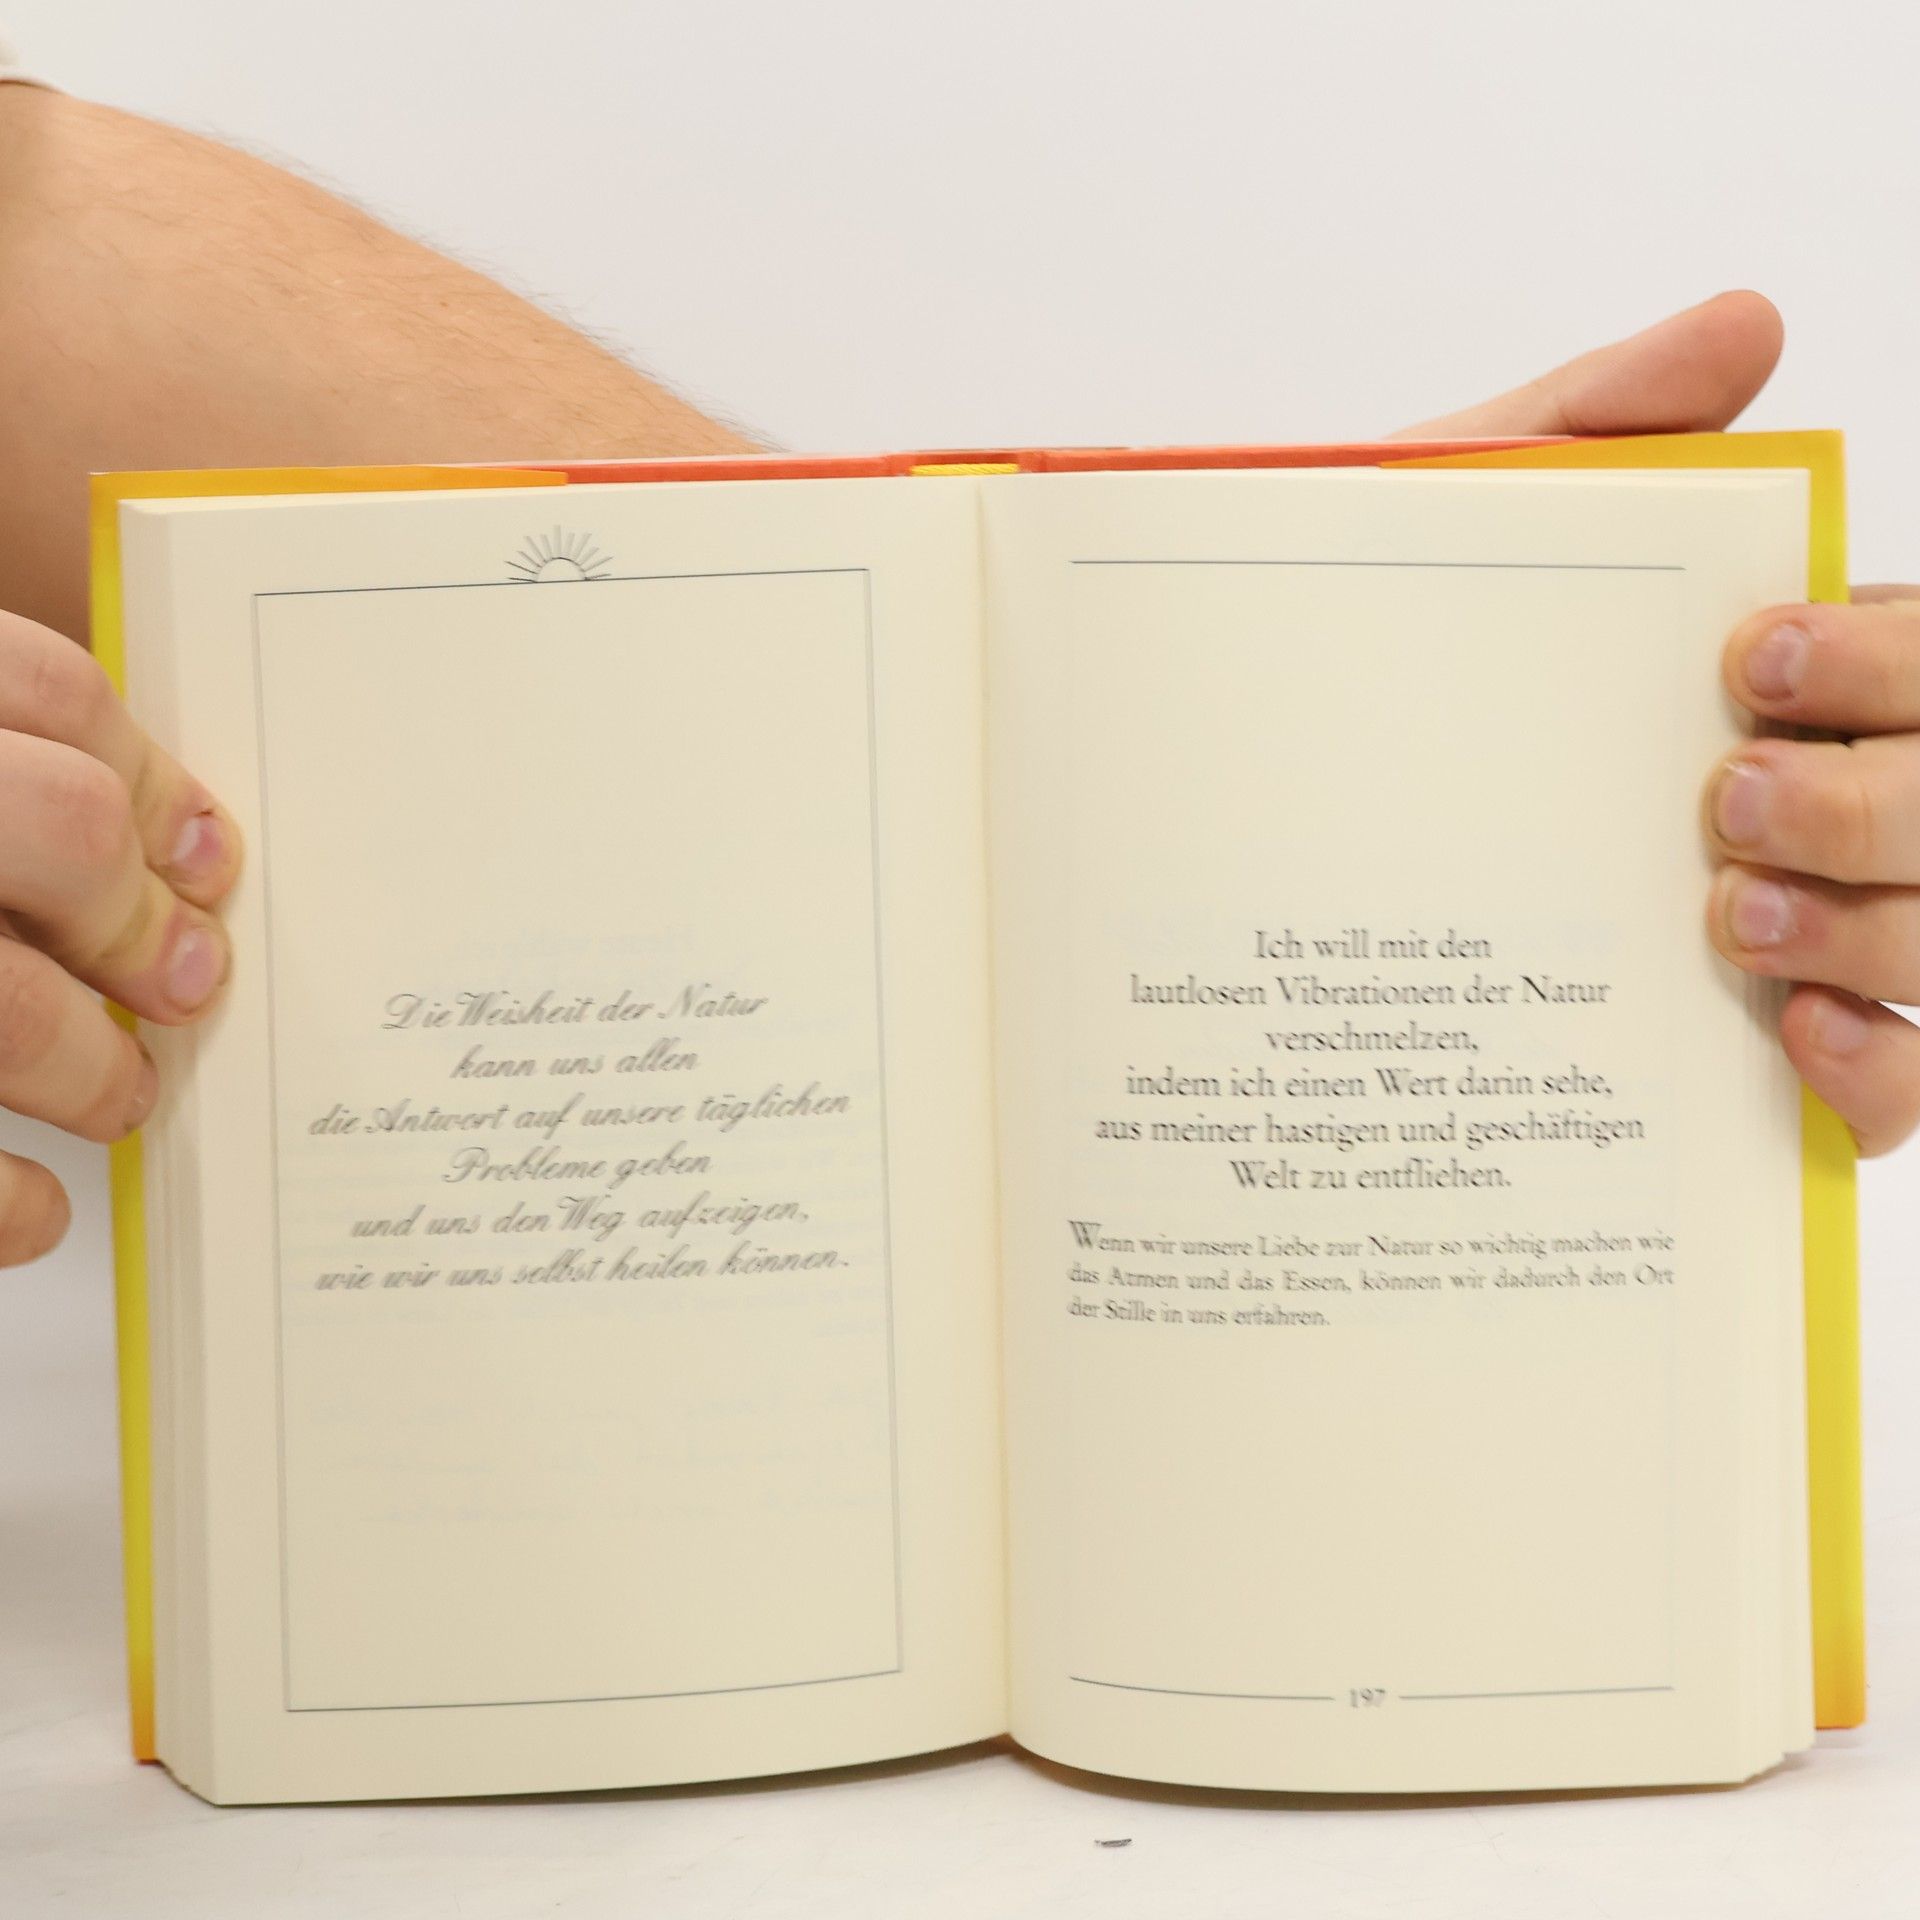 Die Weisheit der Natur
kann uns allen
die Antwort auf unsere täglichen
Probleme geben
und uns den Weg aufzeigen,
wie wir uns selbst heilen können.
Ich will mit den
lautlosen Vibrationen der Natur
verschmelzen,
indem ich einen Wert darin sehe,
aus meiner hastigen und geschäftigen
Welt zu entfliehen.
Wenn wir unsere Liebe zur Natur so wichtig machen wie
das Atmen und das Essen, können wir dadurch den Ort
der Stille in uns erfahren.
197